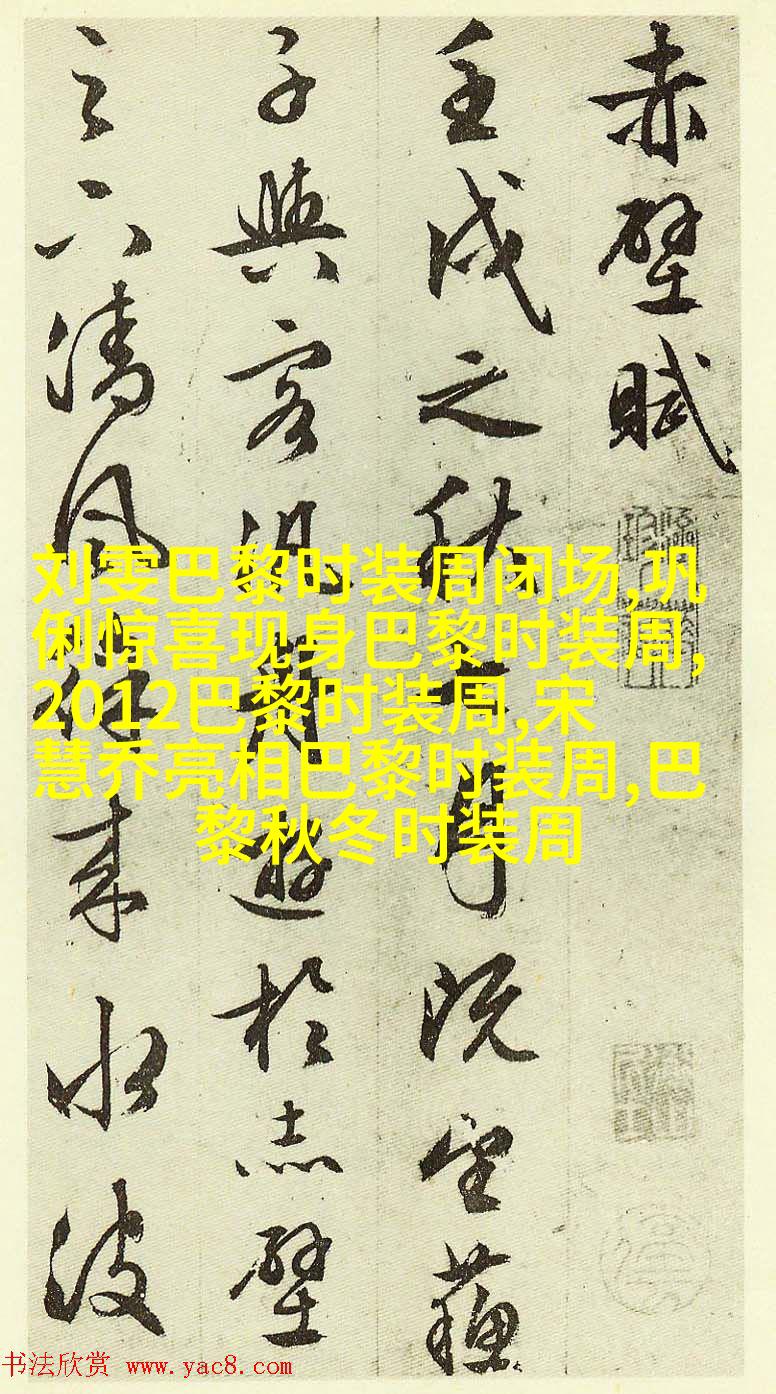 赤壁賦
壬戌之秋七月既望蘇
子與客汎舟遊於赤壁
之下清風徐來水波
刘雯巴黎时装周闭场,巩
俐惊喜现身巴黎时装周,
2012巴黎时装周,宋
慧乔亮相巴黎时装周,巴
黎秋冬时装周
书法欣赏 www.yac8.com